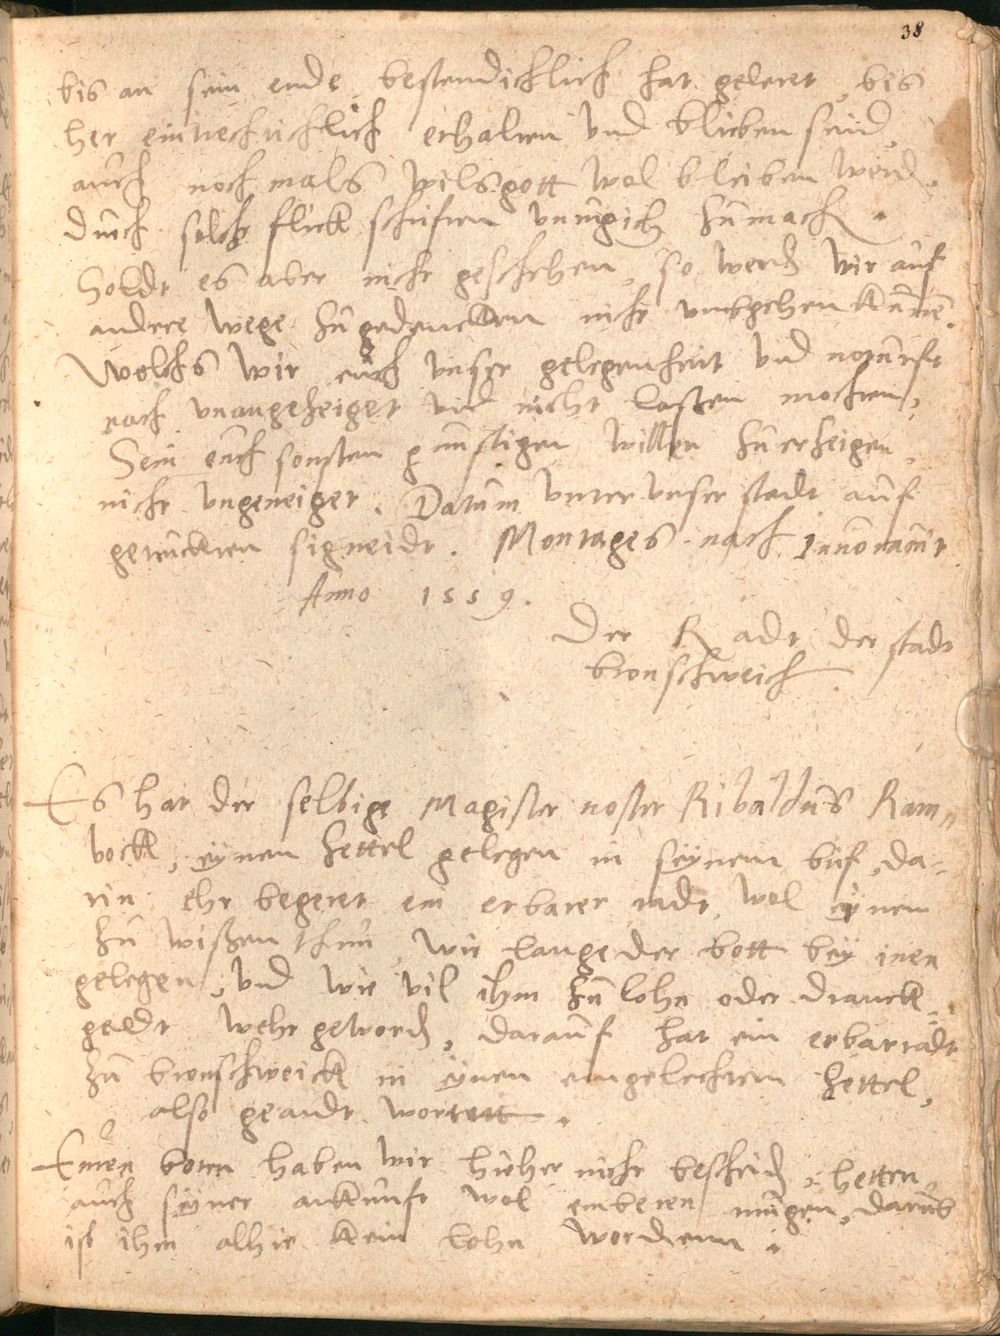 38
bis an sein ende bestendichlich hat geleret, bis
her eintrechtichlich erhalten und blieben seind,
auch noch mals, wils gott wol bleiben werd.
durch solch flick schrifften unrugich zu mach.
Soldt es aber nicht geschehen, so werd wir auf
andere wege zu gedencken nicht umbgehen können.
Welchs wir euch unser gelegenheit und noturft
nach unangezeiget und nicht laszen mochten,
Sein euch sonsten gunstigen willen zu erzeigen,
nicht ungeneiget. Datum unter unser stadt auf
getruckten signeidt. Montages nach Innovavit
Anno 1559.
Der Radt der stadt
bronschweich
Es hat der selbige Magister noster Ribaldus Ram-
bock, eynen zettel gelegen in seynem brif, da-
rin ehr begeret ein erbarer radt wol eynem
zu wiszen thun, wie lange der bott bey inen
gelegen, und wie vil ihm zu lohn oder dranck
geldt wehr geword, darauf hat ein erbar radt
zu bronschweick in eynen eingelechten zettel,
also geandtwortett.
Einen boten haben wir hieher nicht bescheid, hetten
auch seyner ankunft wol emberen mugen, darumb
ist ihm alhie kein lohn wordenn.